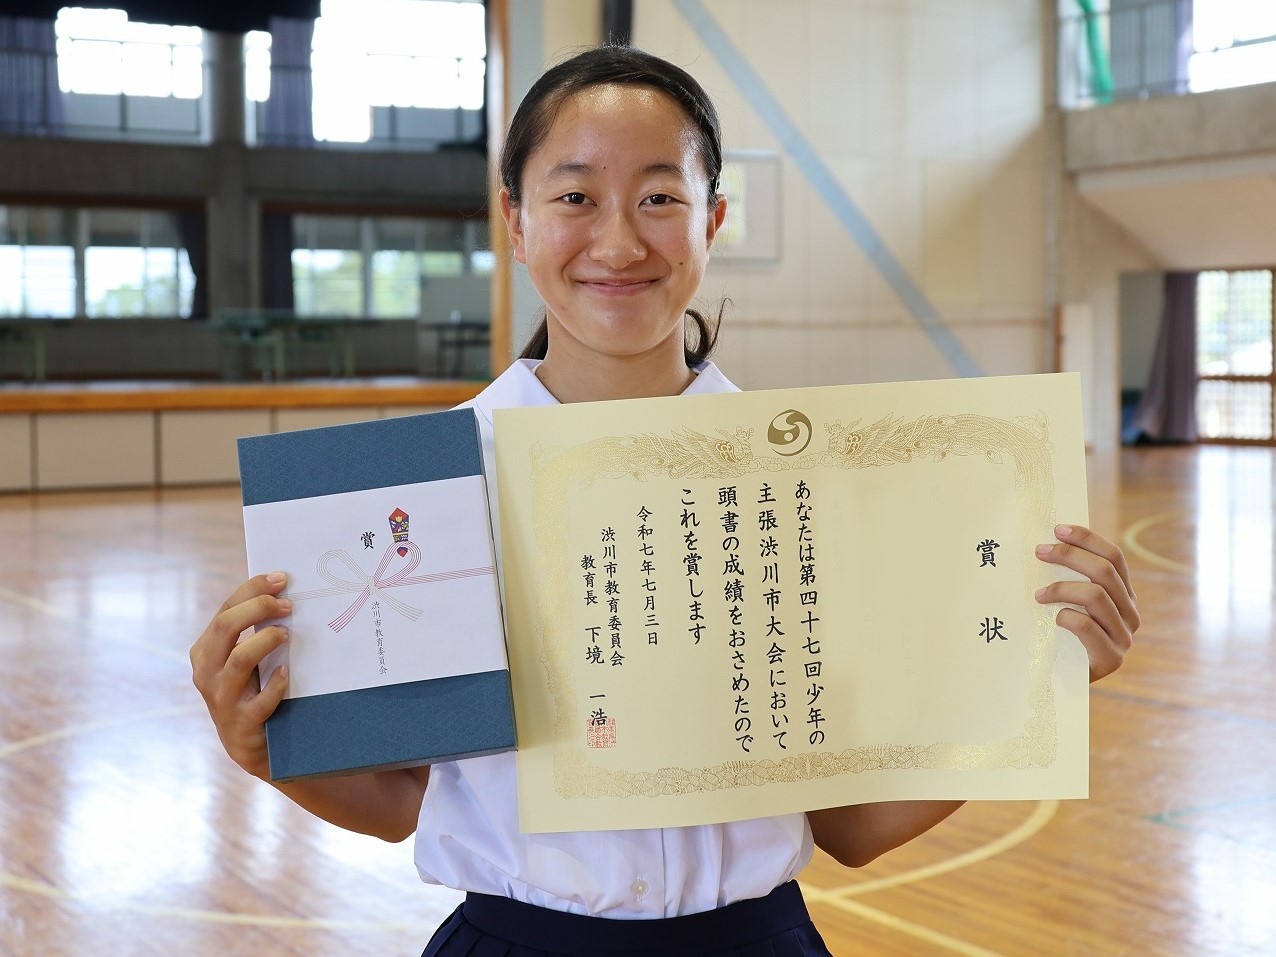 賞
渋川市教育委員会
賞状
あなたは第四十七回少年の
主張渋川市大会において
頭書の成績をおさめたので
これを賞します
令和七年七月三日
渋川市教育委員会
教育長 下境 一浩